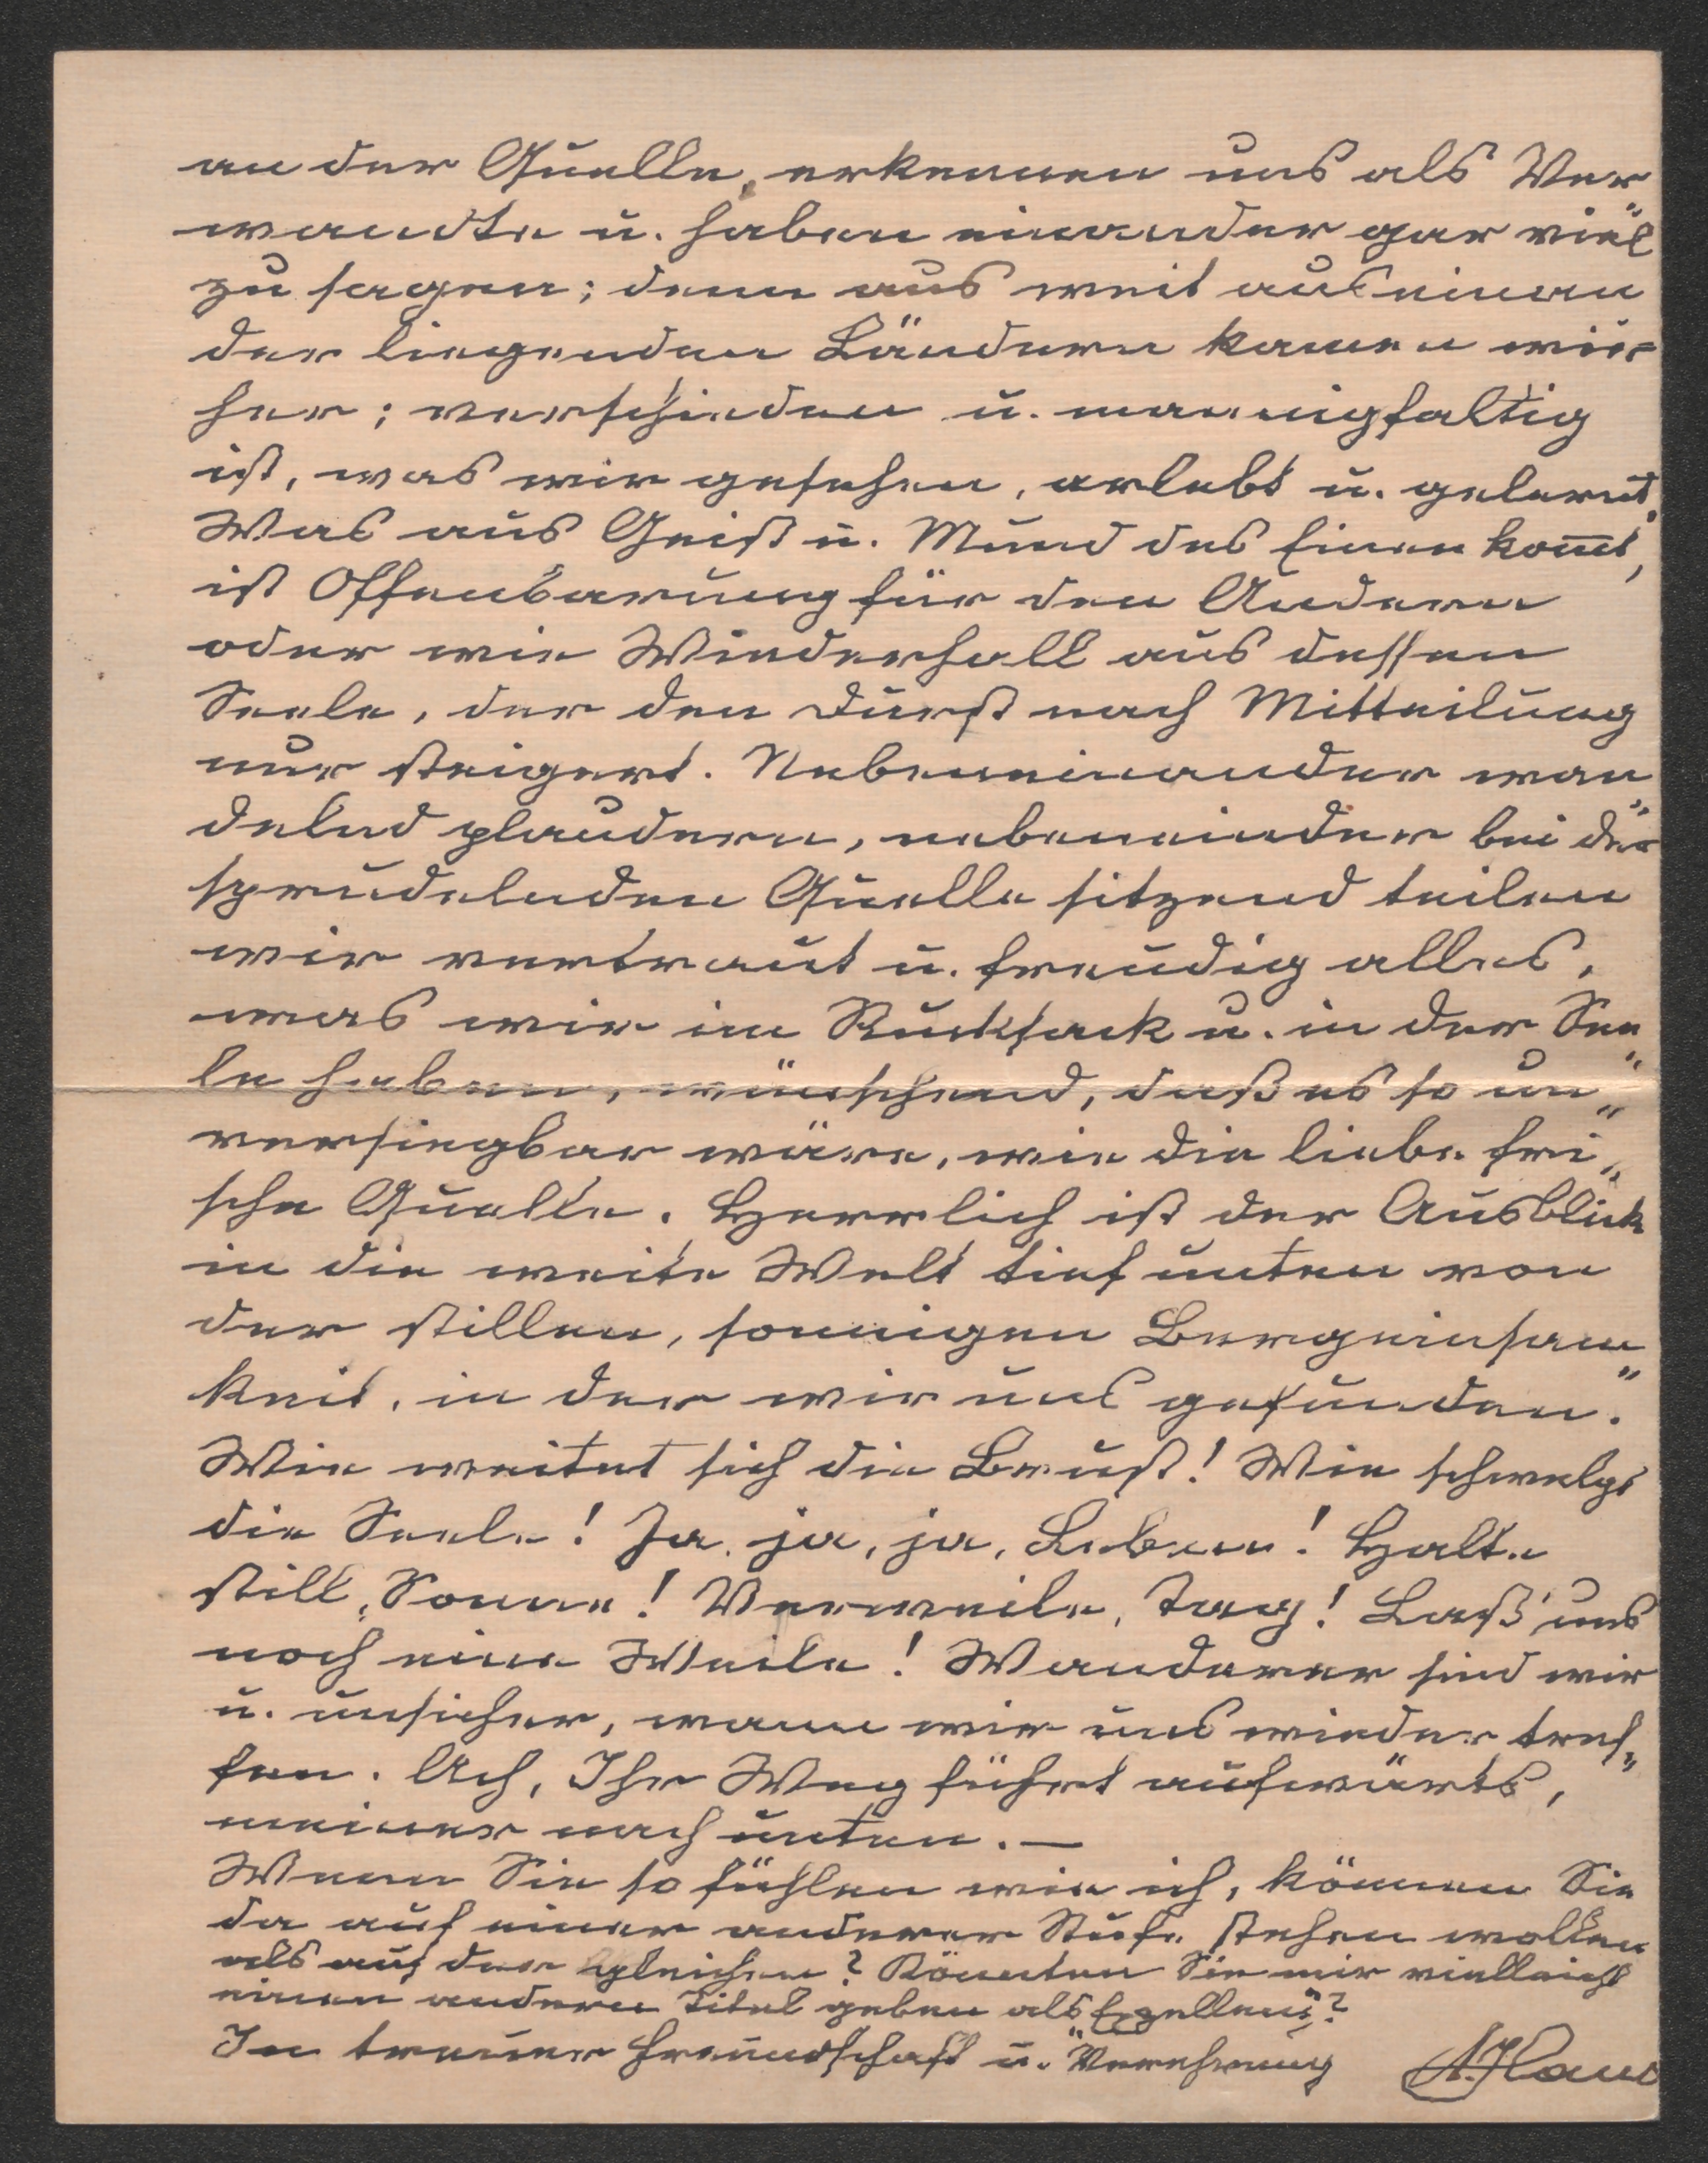 an der Quelle, erkennen uns als Ver
wandte u. haben einander gar viel"
zu sagen; denn aus weit auseinan
der liegenden Ländern kamen wir
her; verschieden u. mannigfaltig
ist, was wir gesehen, erlebt u. gelernt.
Was aus Geist u. Mund des Einen kom̅t,
ist Offenbarung für den Andern
oder wie Wiederhall aus dessen
Seele, der den Durst nach Mitteilung
nur steigert. Nebeneinander wan
delnd plaudern, nebeneinder bei der"
sprudelnden Quelle sitzend teilen
wir vertraut u. freudig alles,
was wir im Rucksack u. in der See
le haben, wünschend, daß es so un"
versiegbar wäre, wie die liebe fri"
sche Quelle. Herrlich ist der Ausblick
in die weite Welt tief unten von
der stillen, sonnigen Bergeinsam
keit, in der wir uns gefunden."
Wie weitet sich die Brust! Wie schwelgt
die Seele! Ja, ja, ja, Leben! Halte
still, Sonne! Verweile, Tag! Laß uns
noch eine Weile! Wanderer sind wir
u. unsicher, wann wir uns wieder tref"
fen. Ach, Ihr Weg führt aufwärts,
meiner nach unten. —
Wenn Sie so fühlen wie ich, können Sie
da auf einer anderer Stufe stehen wollen
als auf der gleichen? Könnten Sie mir vielleicht
einen andern Titel geben als "Exzellenz"?
In treuer Freundschaft u. Verehrung